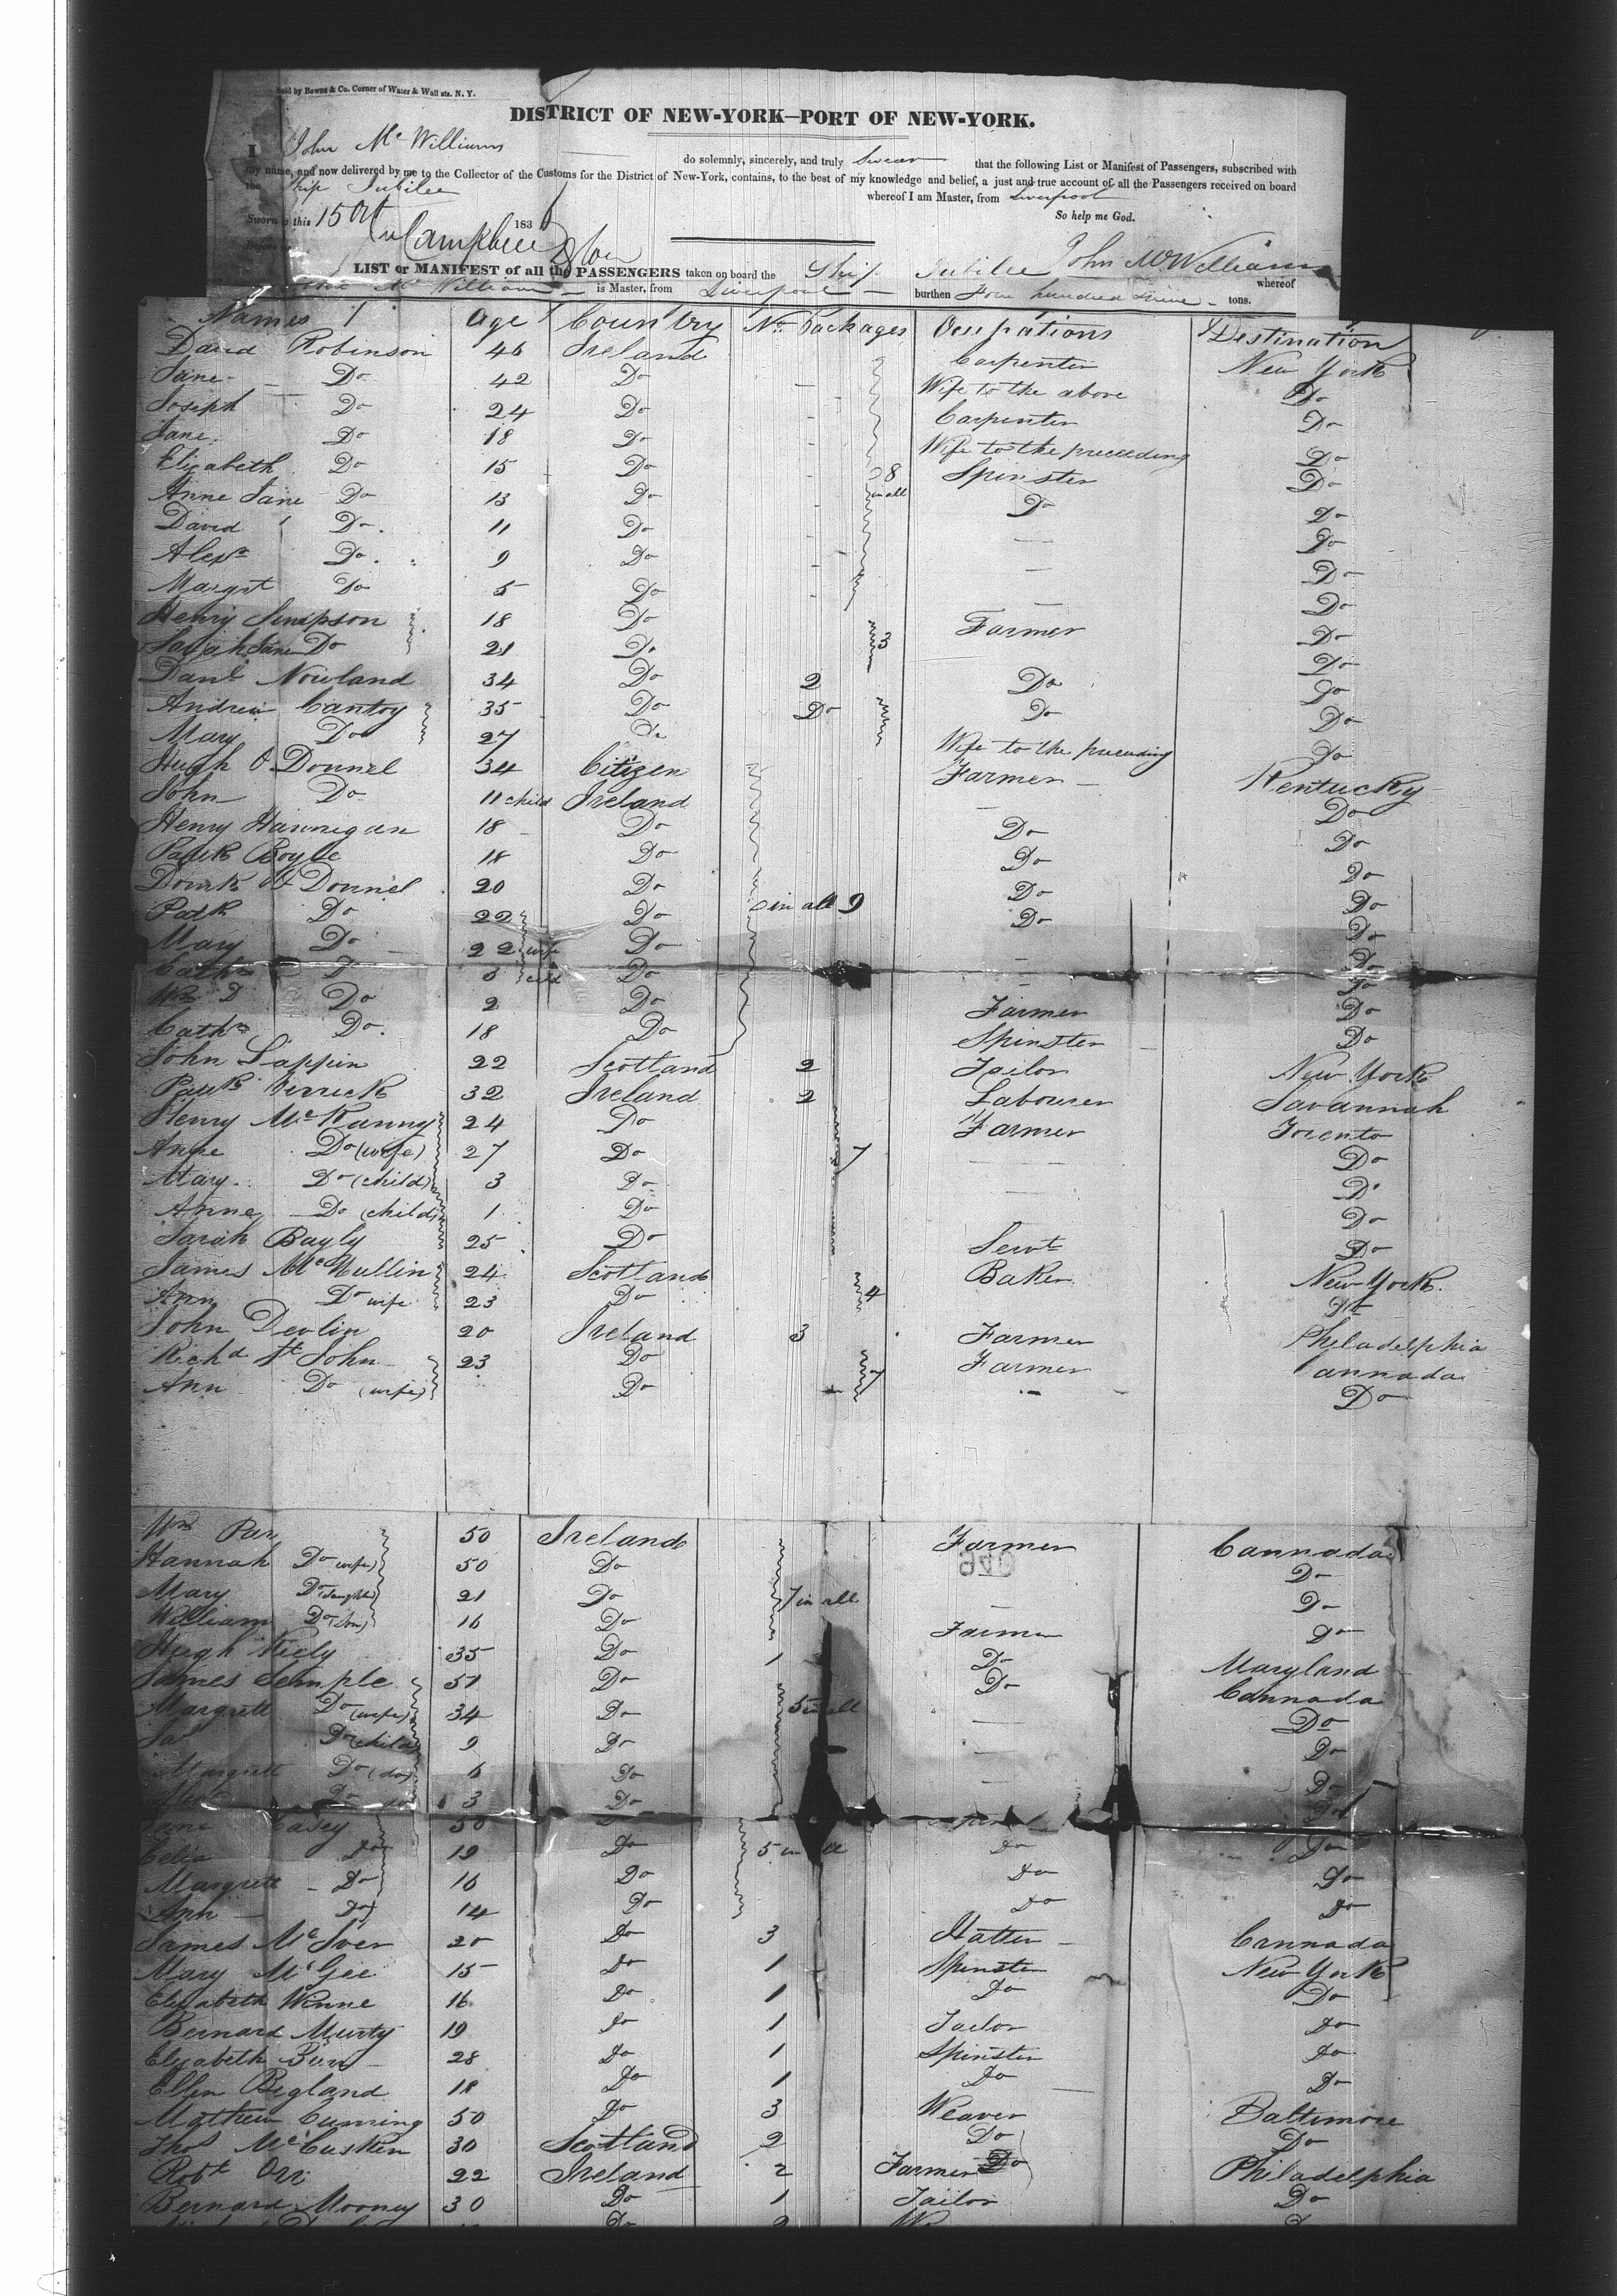 Sold by Bowne & Co. Corner of Water & Wall sts. N. Y.
DISTRICT OF NEW-YORK—PORT OF NEW-YORK.
I John Mc Williams do solemnly, sincerely, and truly Swear that the following List or Manifest of Passengers, subscribed with
my name, and now delivered by me to the Collector of the Customs for the District of New-York, contains, to the best of my knowledge and belief, a just and true account of all the Passengers received on board
the Ship Jubilee whereof I am Master, from Liverpool
Sworn to this 15 Oct 183 So help me God.
Before Campbell John McWilliams
LIST or MANIFEST of all the PASSENGERS taken on board the Ship Jubilee whereof
Mc Williams is Master, from Liverpool burthen Four hundred tons.
Names Age Country No. Packages Occupations Destination
David Robinson 46 Ireland Carpenter New York
Jane Do 42 Do Wife to the above Do
Joseph Do 24 Do Carpenter Do
Jane Do 18 Do Wife to the preceeding Do
Elizabeth Do 15 Do 8 Spinster Do
Anne Jane Do 13 Do in all Do Do
David Do 11 Do Do
Alexr Do 9 Do Do
Margt Do 5 Do Do
Henry Simpson 18 Do Farmer Do
Sarah Jane Do 21 Do 3 Do
Danl Nowland 34 Do 2 Do Do
Andrew Cantoy 35 Do Do Do Do
Mary Do 27 Do Wife to the preceeding Do
Hugh O Donnel 34 Citizen Farmer Kentucky
John Do 11 child Ireland Do
Henry Hannegan 18 Do Do Do
Patrk Boyle 18 Do Do Do
O Donnel 20 Do in all 9 Do Do
Patk Do 22 Do Do Do
Mary Do 22 wife Do Do
Cathn Do child Do Do
Wm D Do 2 Do Farmer Do
Cathn Do 18 Do Spinster Do
John Lappin 22 Scotland 2 Tailor New York
Patrk 32 Ireland 2 Labourer Savannah
Henry McKanny 24 Do Farmer Toronto
Anne Do (wife) 27 Do 7 Do
Mary Do (child) 3 Do Do
Anne Do (child) 1 Do Do
Sarah Bayly 25 Do Servt Do
James McNullin 24 Scotland Baker New York
Ann Do wife 23 Do 4 Do
John Devlin 20 Ireland 3 Farmer Philadelphia
Richd St John 23 Do 7 Farmer Cannada
Ann Do (wife) Do Do
Wm 50 Ireland Farmer Cannada
Hannah Do wife) 50 Do Do
Mary Do Daughter) 21 Do 7 in all Do
William Do (Son) 16 Do Farmer Do
Hugh 35 Do 1 Do Maryland
James Semple 51 Do Do Cannada
Margrett Do (wife) 34 Do 5 in all Do
Do (child 9 Do Do
Margrett Do (do) 6 Do Do
Do 3 Do Do
Jane Casey 50
Celia Do 19 Do 5 in all Do Do
Margrett Do 16 Do Do Do
Ann Do 14 Do Do Do
James McIver 20 Do 3 Hatter Cannada
Mary McGee 15 Do 1 Spinster New York
Elizabeth Winne 16 Do 1 Do Do
Bernard Murty 19 Do 1 Tailor Do
Elizabeth 28 Do 1 Spinster Do
Ellen Begland 18 Do 1 Do Do
Mathew Cuming 50 Do 3 Weaver Baltimore
Thos McCusken 30 Scotland 2 Do Do
Robt Orr 22 Ireland 2 Farmer Do Philadelphia
Bernard Mooney 30 Do 1 Tailor Do